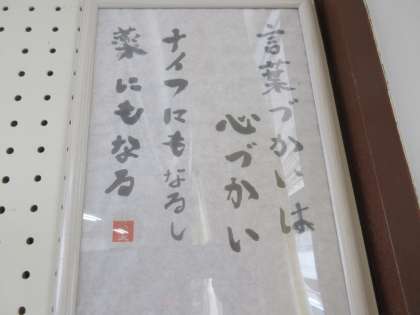 言葉づかいは
心づかい
ナイフにもなるし
薬にもなる